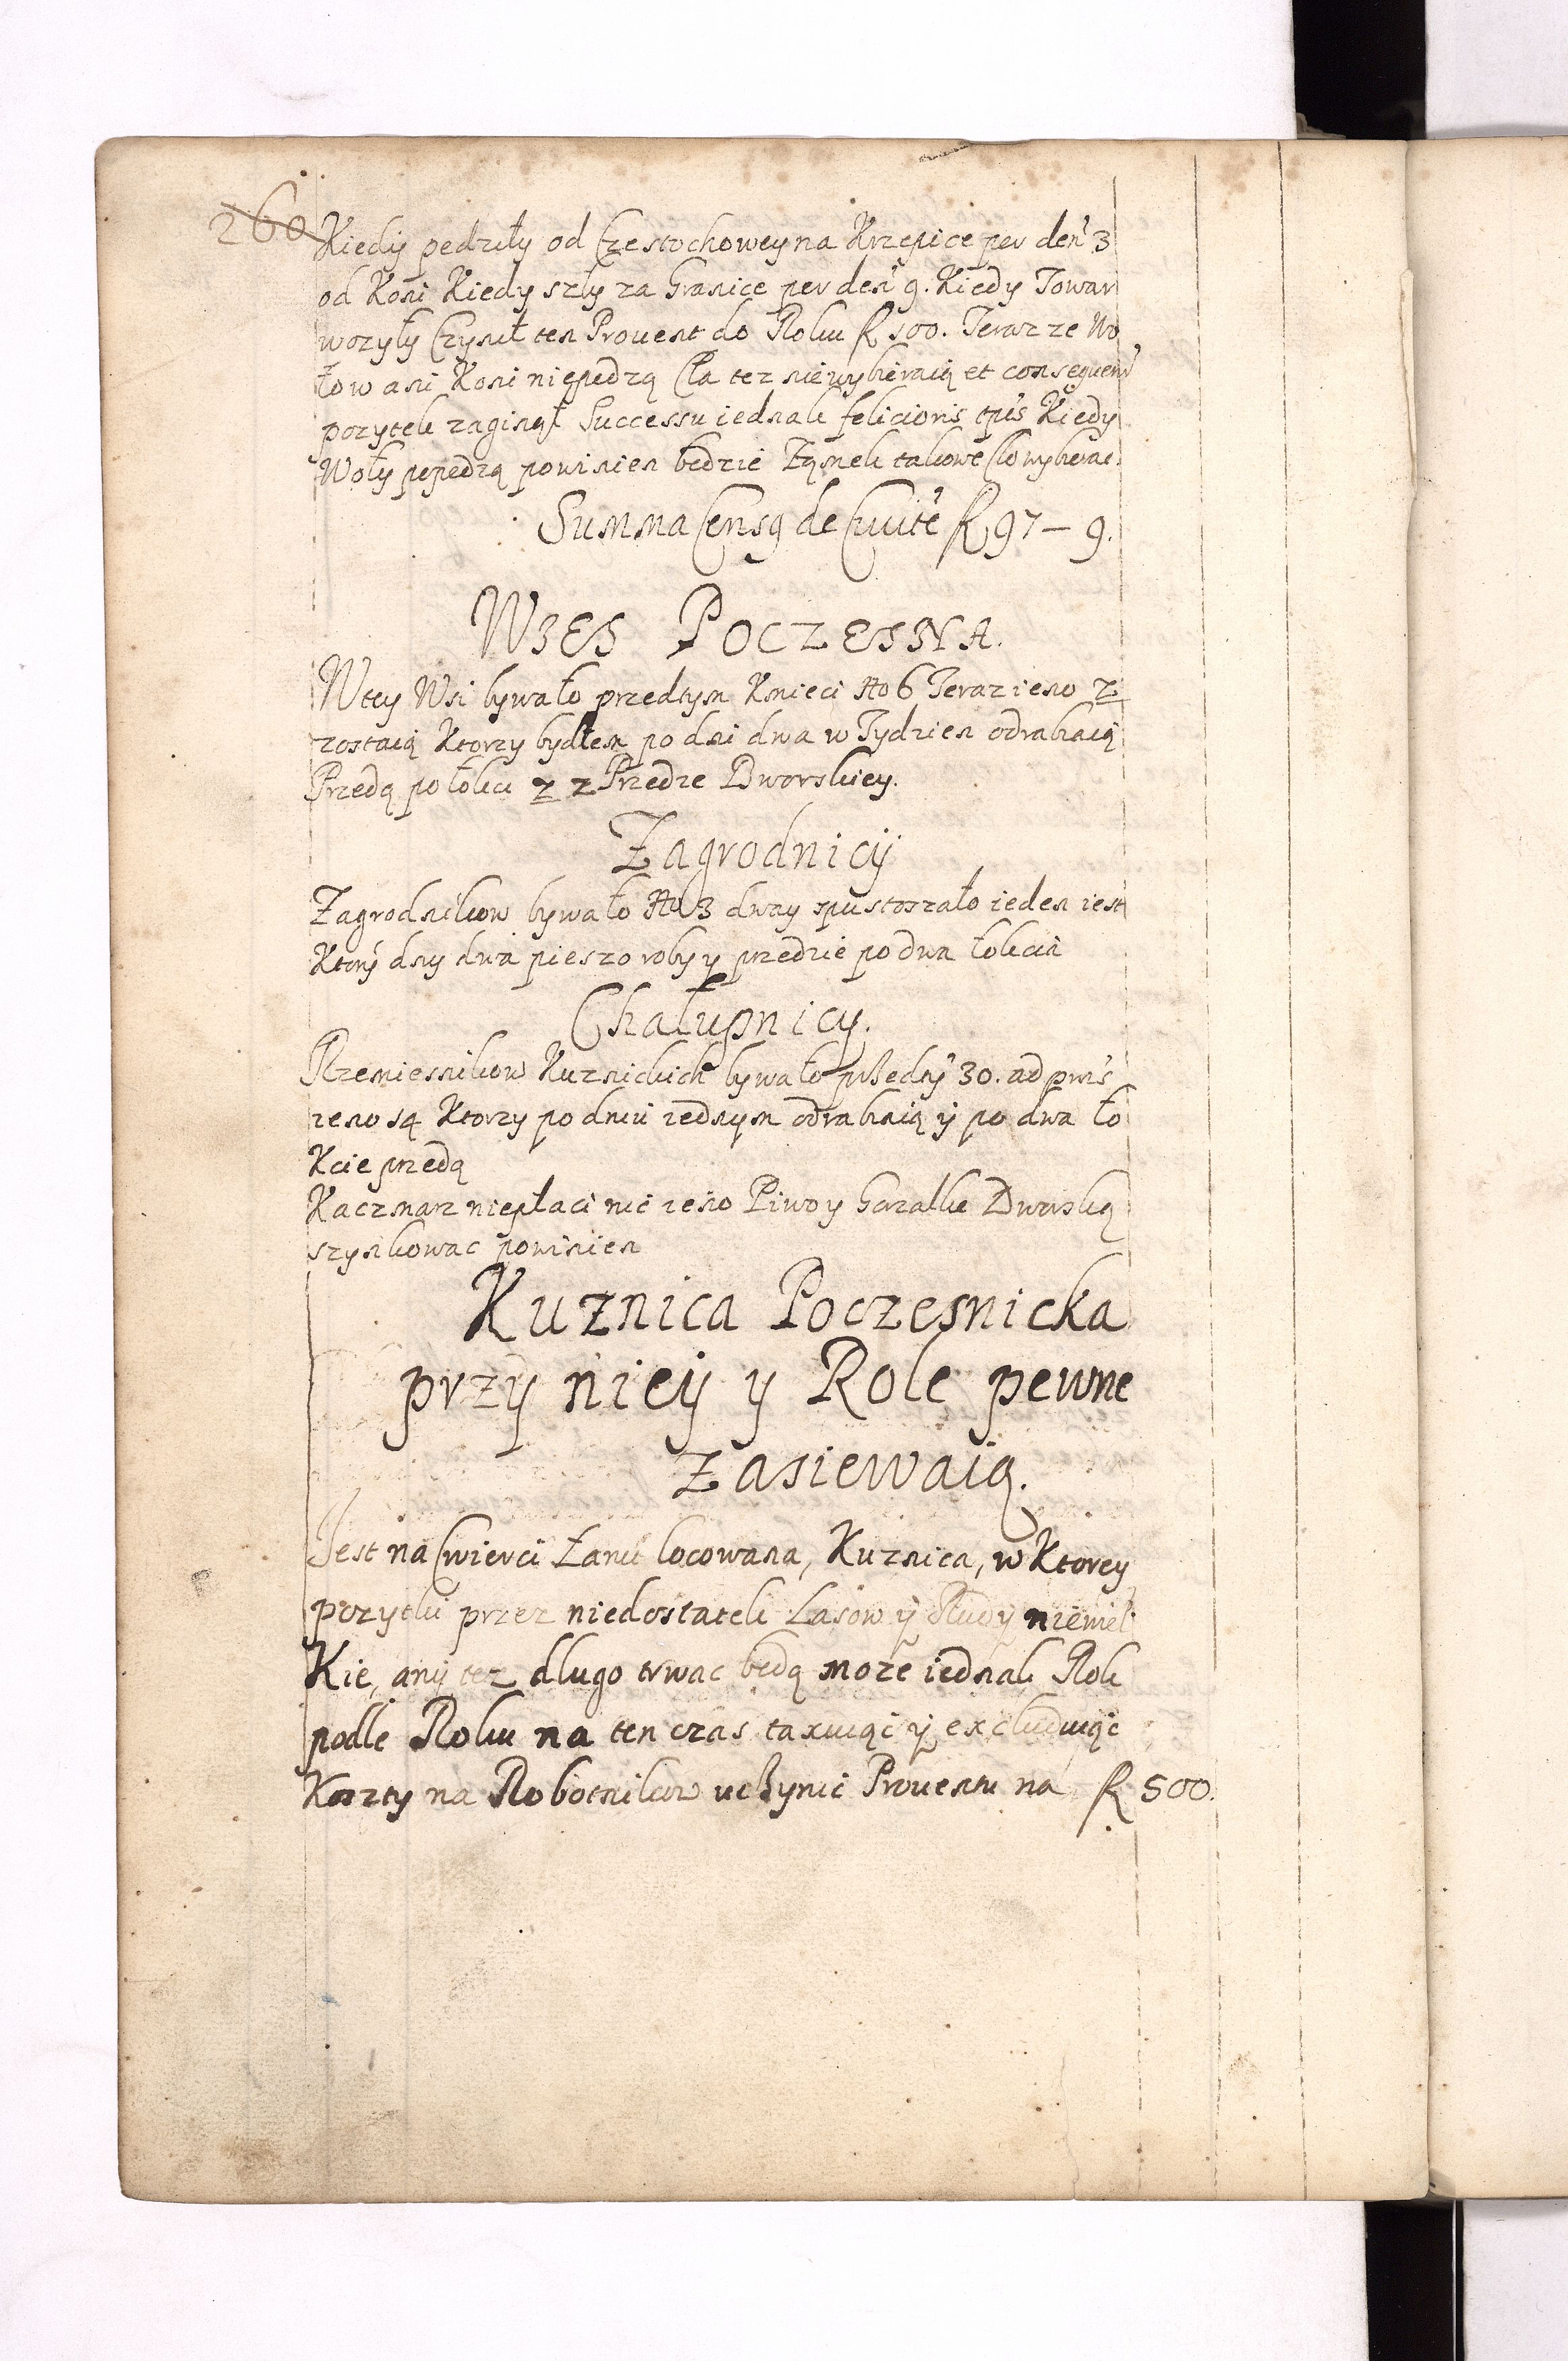 260
Kiedy pedziły od Czestochowey na Krzepice per den 3
od Koni Kiedy szły za Granice per den 9. Kiedy Towar
wozyły Czynił ten Prouent do Roku R 100. Teraz ze Wo
łow ani Koni niepedzą Cła tez niewybieraią et consequen
pozytek zaginął Successu iednak felicioris tpis Kiedy
Woły popedzą powinien bedzie Zamek takowe Cło wybierac.
Summa Censq de Ciuite R 97 – 9.
WIES POCZESNA.
Wtey Wsi bywało przedtym Kmieci No 6 Teraz ieno 2
zostaią Ktorzy bydłem po dni dwa w Tydzien odrabiaią
Przedą po łokci 2 z Przedze Dworskiey.
Zagrodnicy
Zagrodnikow bywało No 3 dway spustoszało ieden iest
Ktory dny dwa pieszo roby y przedzie po dwa łokcia
Chałupnicy.
Rzemiesnikow Kuznickich bywało przedty 30. ad pns
ieno są Ktorzy po dniu iednym odrabiaią y po dwa ło
Kcie przedą
Kaczmarz niepłaci nic ieno Piwo y Gorzałke Dworską
szynkowac powinien
Kuznica Poczesnicka
przy niey y Role pewne
Zasiewaią.
Jest na Cwierci Łanu locowana, Kuznica, w Ktorey
pozytki przez niedostatek Lasow y Rudy niewiel
Kie, any tez dlugo trwac będą moze iednak Rok
podle Roku na ten czas taxuiąc y excluduiąc
Koszty na Robotnikow uczynic Prouentu na R 500.